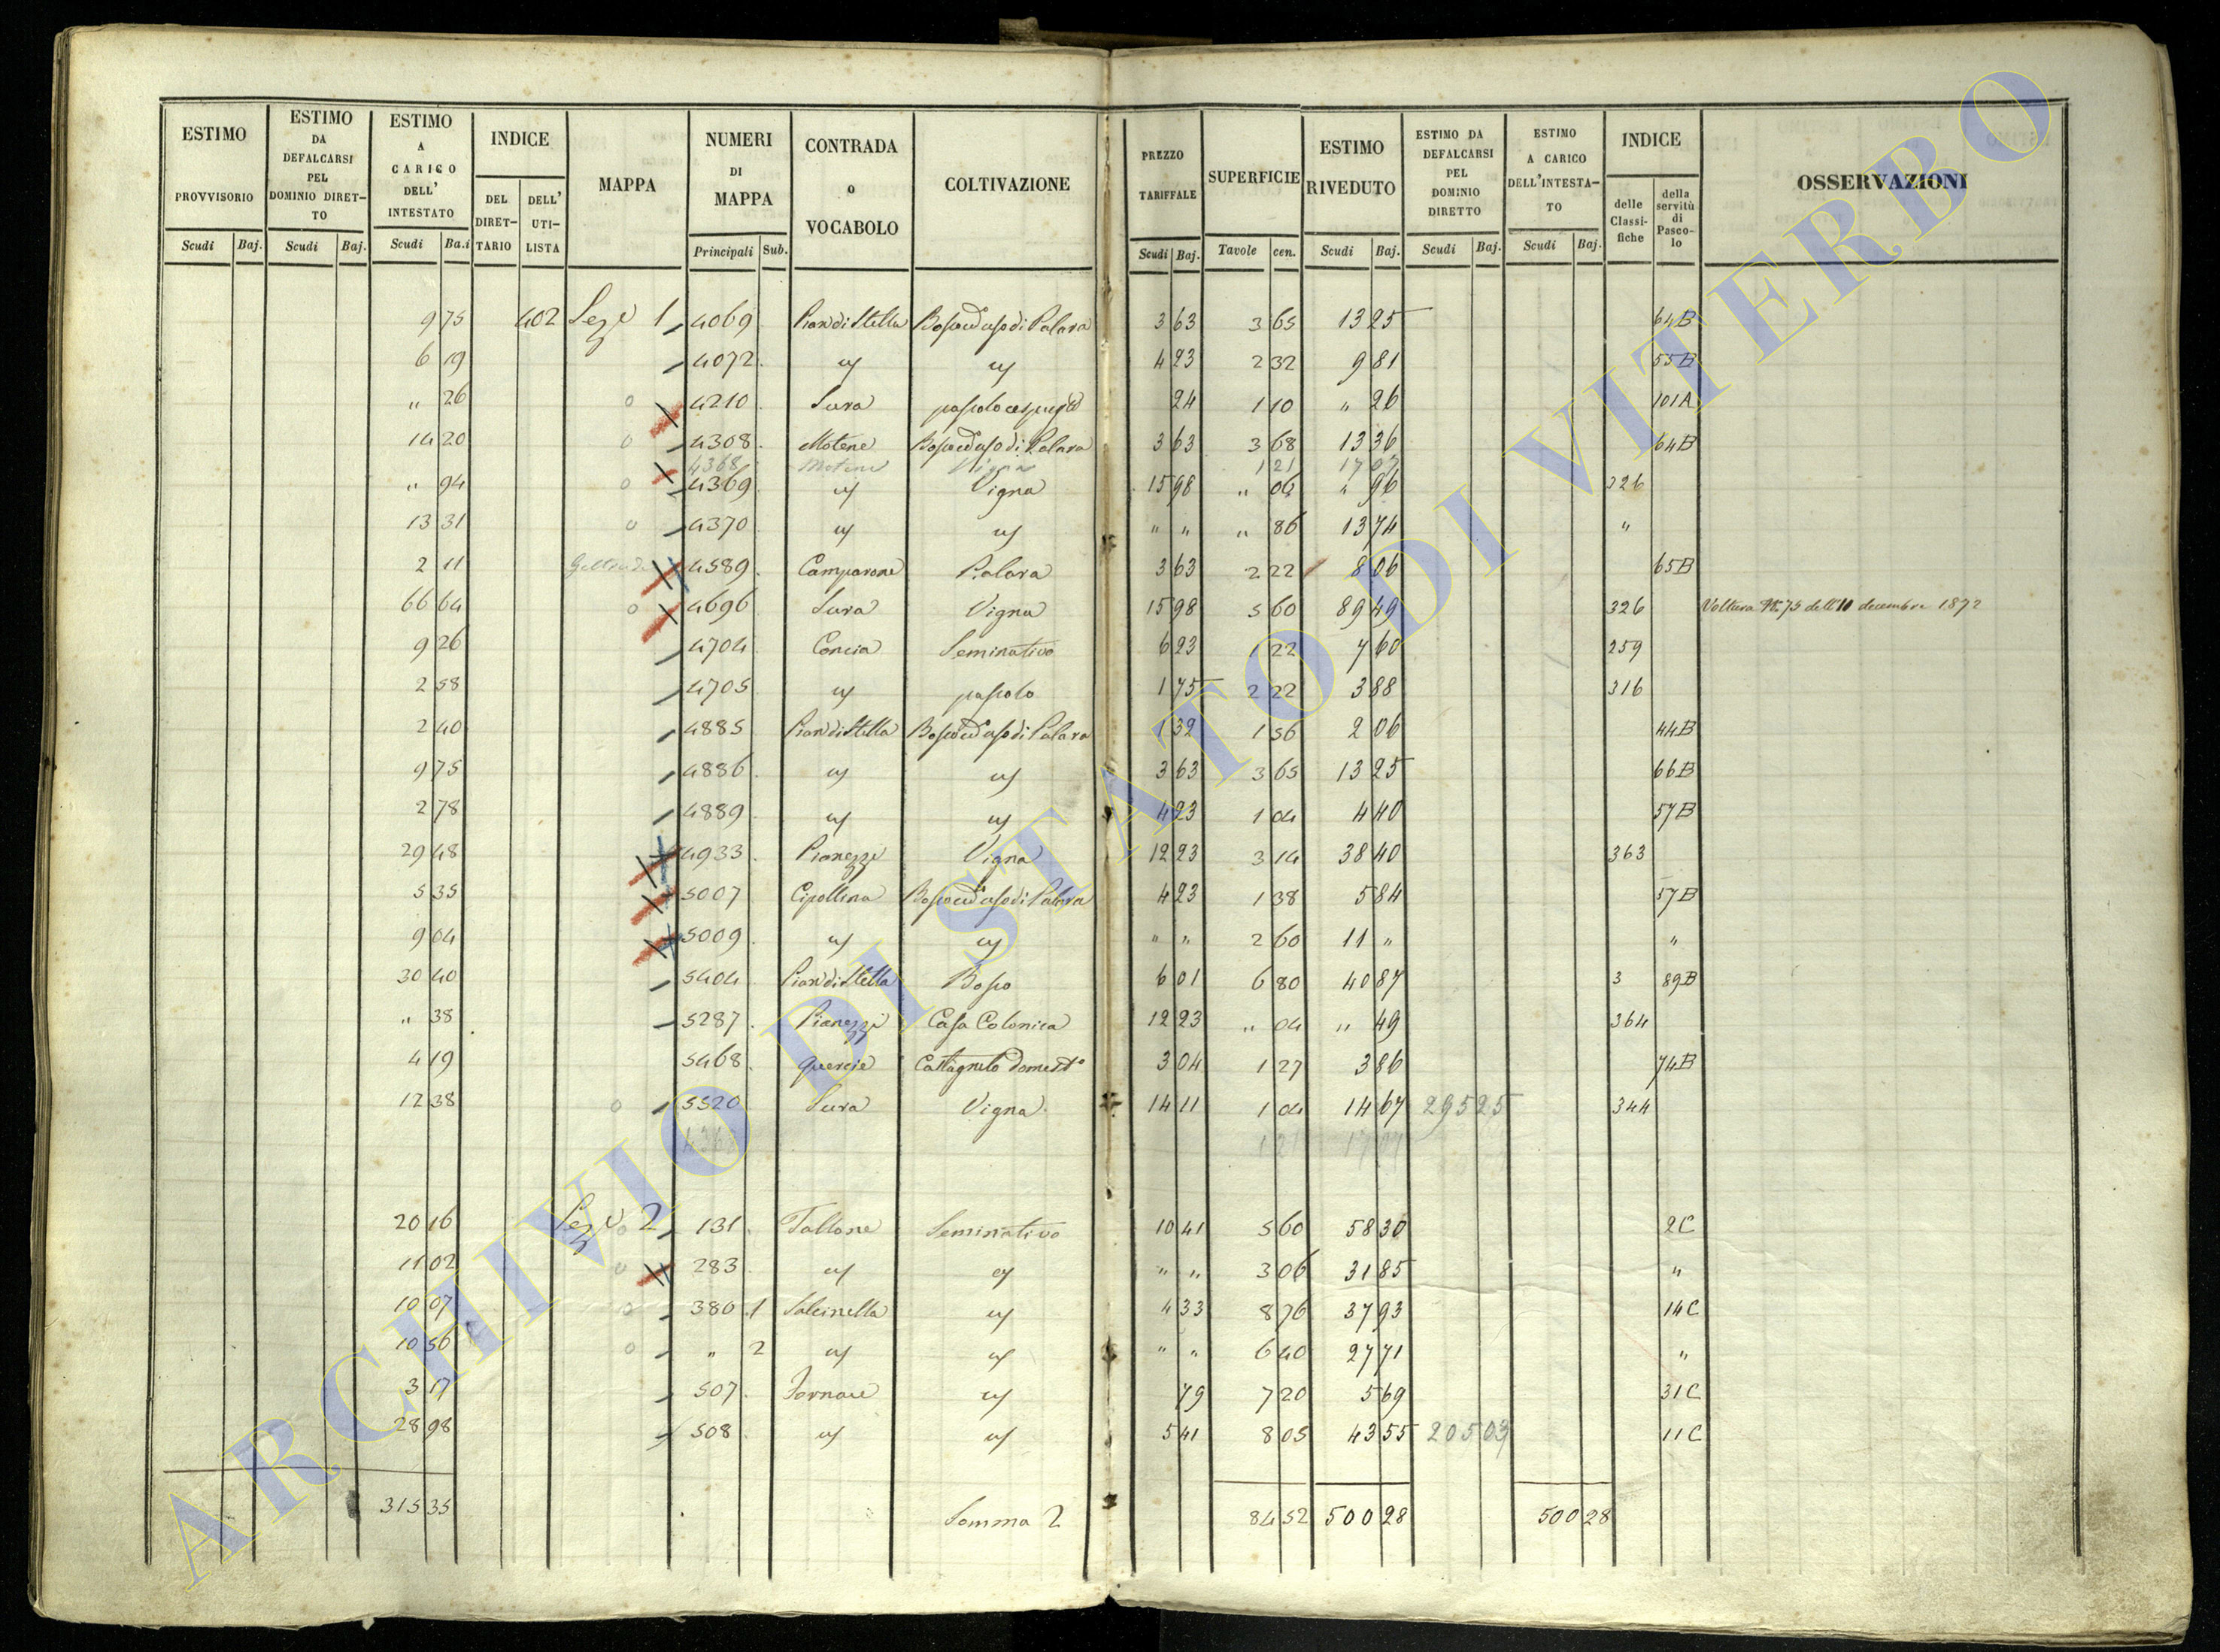 ESTIMO PROVVISORIO Scudi Baj.
ESTIMO DA DEFALCARSI PEL DOMINIO DIRET-TO Scudi Baj.
ESTIMO A CARICO DELL' INTESTATO Scudi Ba.i
INDICE DEL DIRET-TARIO DELL' UTI-LISTA
MAPPA
NUMERI DI MAPPA Principali Sub.
CONTRADA o VOCABOLO
COLTIVAZIONE
PREZZO TARIFFALE Scudi Baj.
SUPERFICIE Tavole cen.
ESTIMO RIVEDUTO Scudi Baj.
ESTIMO DA DEFALCARSI PEL DOMINIO DIRETTO Scudi Baj.
ESTIMO A CARICO DELL'INTESTA-TO Scudi Baj.
INDICE delle Classi-fiche della servitù di Pasco-lo
OSSERVAZIONI
9 75 402 Sez.e 1 4069 Pian di Stella Bosco ad uso di Palara 3 63 3 65 13 25 64B
6 19 4072 " " 4 23 2 32 9 81 55B
" 26 4210 Sura pascolo 24 1 10 " 26 101A
14 20 4308 Motene Bosco ad uso di Palara 3 63 3 68 13 36 64B
4368 Motene Vigna 1 21 17 07
" 94 4369 " Vigna 15 98 " 06 " 96 326
13 31 4370 " " " " " 86 13 74 "
2 11 4589 Camparone Palara 3 63 2 22 8 06 65B
66 64 4696 Sura Vigna 15 98 5 60 89 49 326 Voltura N. 75 dell'10 decembre 1872
9 26 4704 Concia Seminativo 6 23 1 22 7 60 259
2 58 4705 " pascolo 1 75 2 22 3 88 316
2 40 4885 Pian di Stella Bosco ad uso di Palara 1 32 1 56 2 06 44B
9 75 4886 " " 3 63 3 65 13 25 66B
2 78 4889 " " 4 23 1 04 4 40 57B
29 48 4933 Pianezze Vigna 12 23 3 14 38 40 363
5 35 5007 Cipollina Bosco ad uso di Palara 4 23 1 38 5 84 57B
9 04 5009 " " " " 2 60 11 " "
30 40 5404 Pian di Stella Bosco 6 01 6 80 40 87 3 89B
" 38 5287 Pianezze Casa Colonica 12 23 " 04 " 49 364
4 19 5468 Quercie Castagneto domest.o 3 04 1 27 3 86 74B
12 38 5520 Sura Vigna 14 11 1 04 14 67 295 25 344
4368 1 21 17 07
20 16 Sez.e 2 131 Fallone Seminativo 10 41 5 60 58 30 2C
11 02 283 " " " " 3 06 31 85 "
10 07 380 1 Salcinella " 4 33 8 76 37 93 14C
10 56 " 2 " " " " 6 40 27 71 "
3 17 507 Fornace " 79 7 20 5 69 31C
28 98 508 " " 5 41 8 05 43 55 205 03 11C
315 35 Somma 2 84 52 500 28 500 28
ARCHIVIO DI STATO DI VITERBO